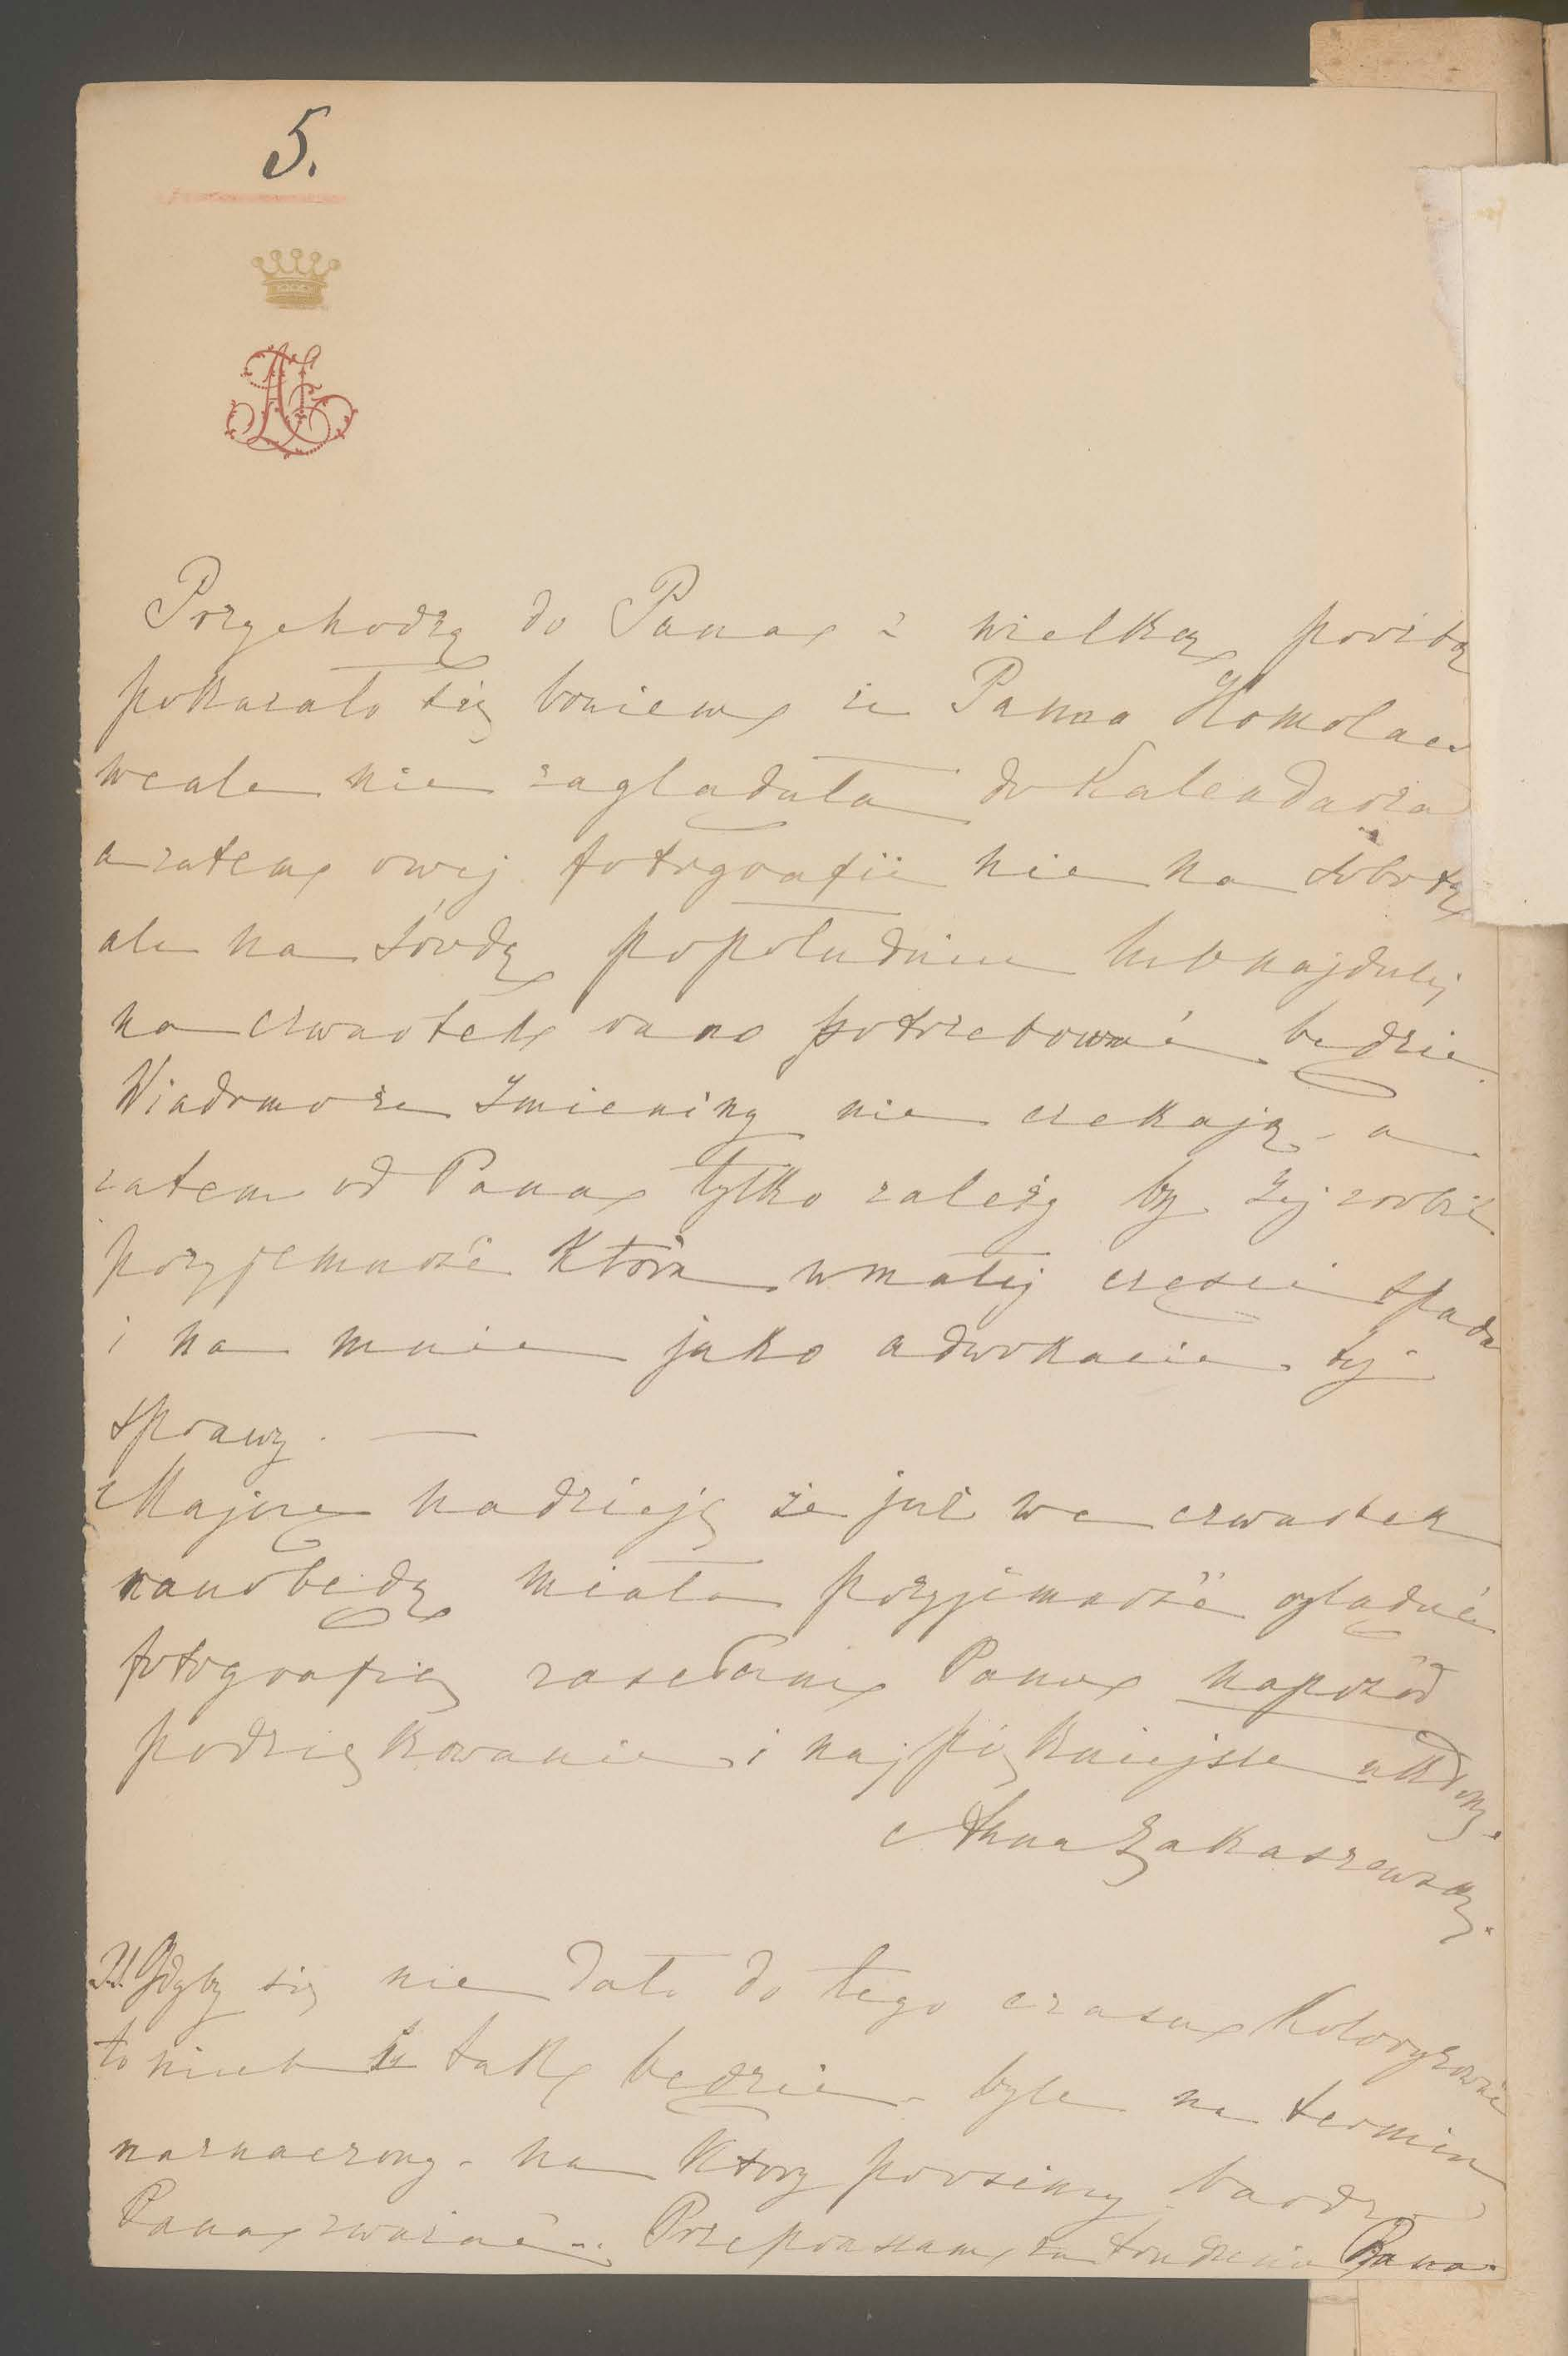 5.
Przychodzę do Pana z wielką prośbą
pokazało się bowiem że Panna Homolacs
wcale nie zaglądała do Kalendarza
a zatem owej fotografii nie na Sobotę
ale na środę popołudniu lub najdalej
na czwartek rano potrzebować będzie.
Wiadomo że Imieniny nie czekają - a
zatem od Pana tylko zależy by Jej zrobić
przyjemność która w małej części spada
i na mnie jako adwokacie tej
sprawy. —
Mając nadzieję że już we czwartek
rano będę miała przyjemność oglądać
fotografię zasełam Panu naprzód
podziękowanie i najpiękniejsze ukłony.
Anna Łakaszewska.
Gdyby się nie dało do tego czasu Koloryzować
to niech i tak będzie - byle na termin
naznaczony - na który prosimy bardzo
Pana zważać... Przepraszam za trudzenie Pana.